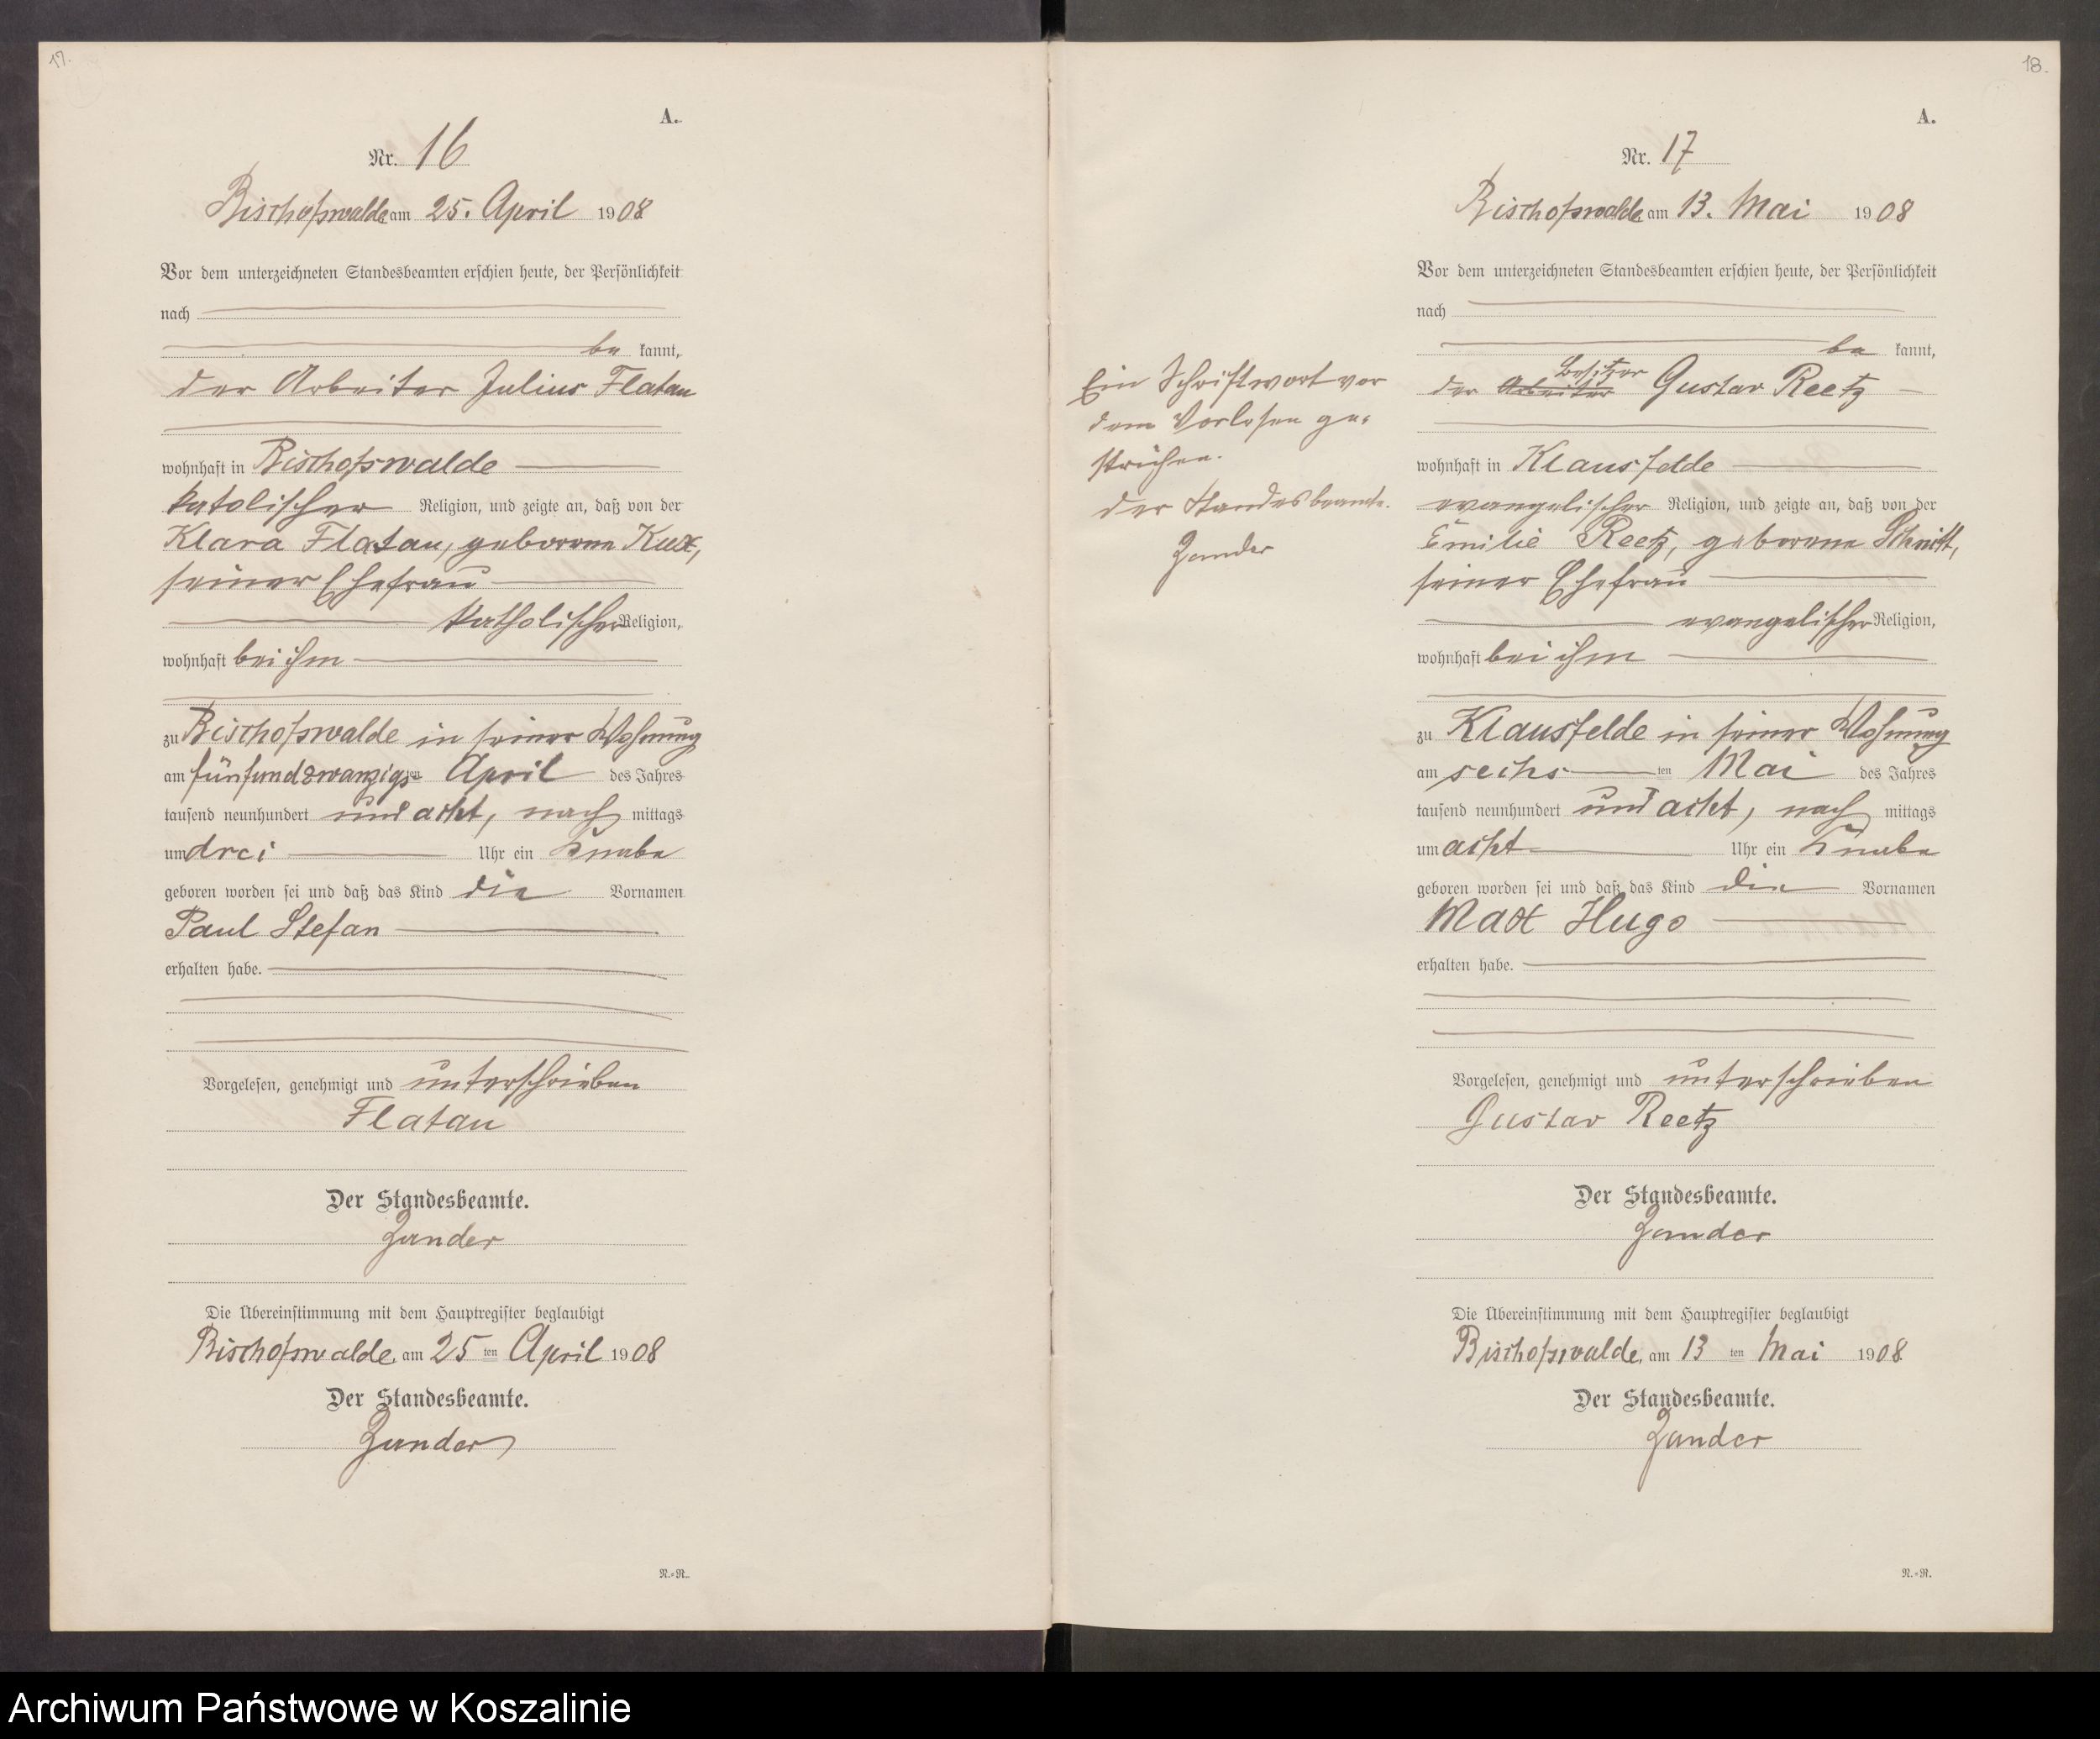 17.
A.
Nr. 16
Bischofswalde am 25. April 1908
Vor dem unterzeichneten Standesbeamten erschien heute, der Persönlichkeit
nach
be kannt,
der Arbeiter Julius Flatau
wohnhaft in Bischofswalde
katolischer Religion, und zeigte an, daß von der
Klara Flatau, geborene Kux,
seiner Ehefrau
katholischer Religion,
wohnhaft bei ihm
zu Bischofswalde in seiner Wohnung
am fünfundzwanzigsten April des Jahres
tausend neunhundert und acht, nach mittags
um drei Uhr ein Knabe
geboren worden sei und daß das Kind die Vornamen
Paul Stefan
erhalten habe.
Vorgelesen, genehmigt und unterschrieben
Flatau
Der Standesbeamte.
Zander
Die Übereinstimmung mit dem Hauptregister beglaubigt
Bischofswalde, am 25 ten April 1908
Der Standesbeamte.
Zander
N.=R.
18.
A.
Nr. 17
Bischofswalde am 13. Mai 1908
Vor dem unterzeichneten Standesbeamten erschien heute, der Persönlichkeit
nach
be kannt,
Besitzer
der Arbeiter Gustav Reetz
wohnhaft in Klausfelde
evangelischer Religion, und zeigte an, daß von der
Emilie Reetz, geborene Schmitt,
seiner Ehefrau
evangelischer Religion,
wohnhaft bei ihm
zu Klausfelde in seiner Wohnung
am sechs ten Mai des Jahres
tausend neunhundert und acht, nach mittags
um acht Uhr ein Knabe
geboren worden sei und daß das Kind die Vornamen
Max Hugo
erhalten habe.
Vorgelesen, genehmigt und unterschrieben
Gustav Reetz
Der Standesbeamte.
Zander
Die Übereinstimmung mit dem Hauptregister beglaubigt
Bischofswalde, am 13 ten Mai 1908
Der Standesbeamte.
Zander
N.=R.
Ein Schriftwort vor
dem Vorlesen ge-
strichen.
der Standesbeamte.
Zander
Archiwum Państwowe w Koszalinie